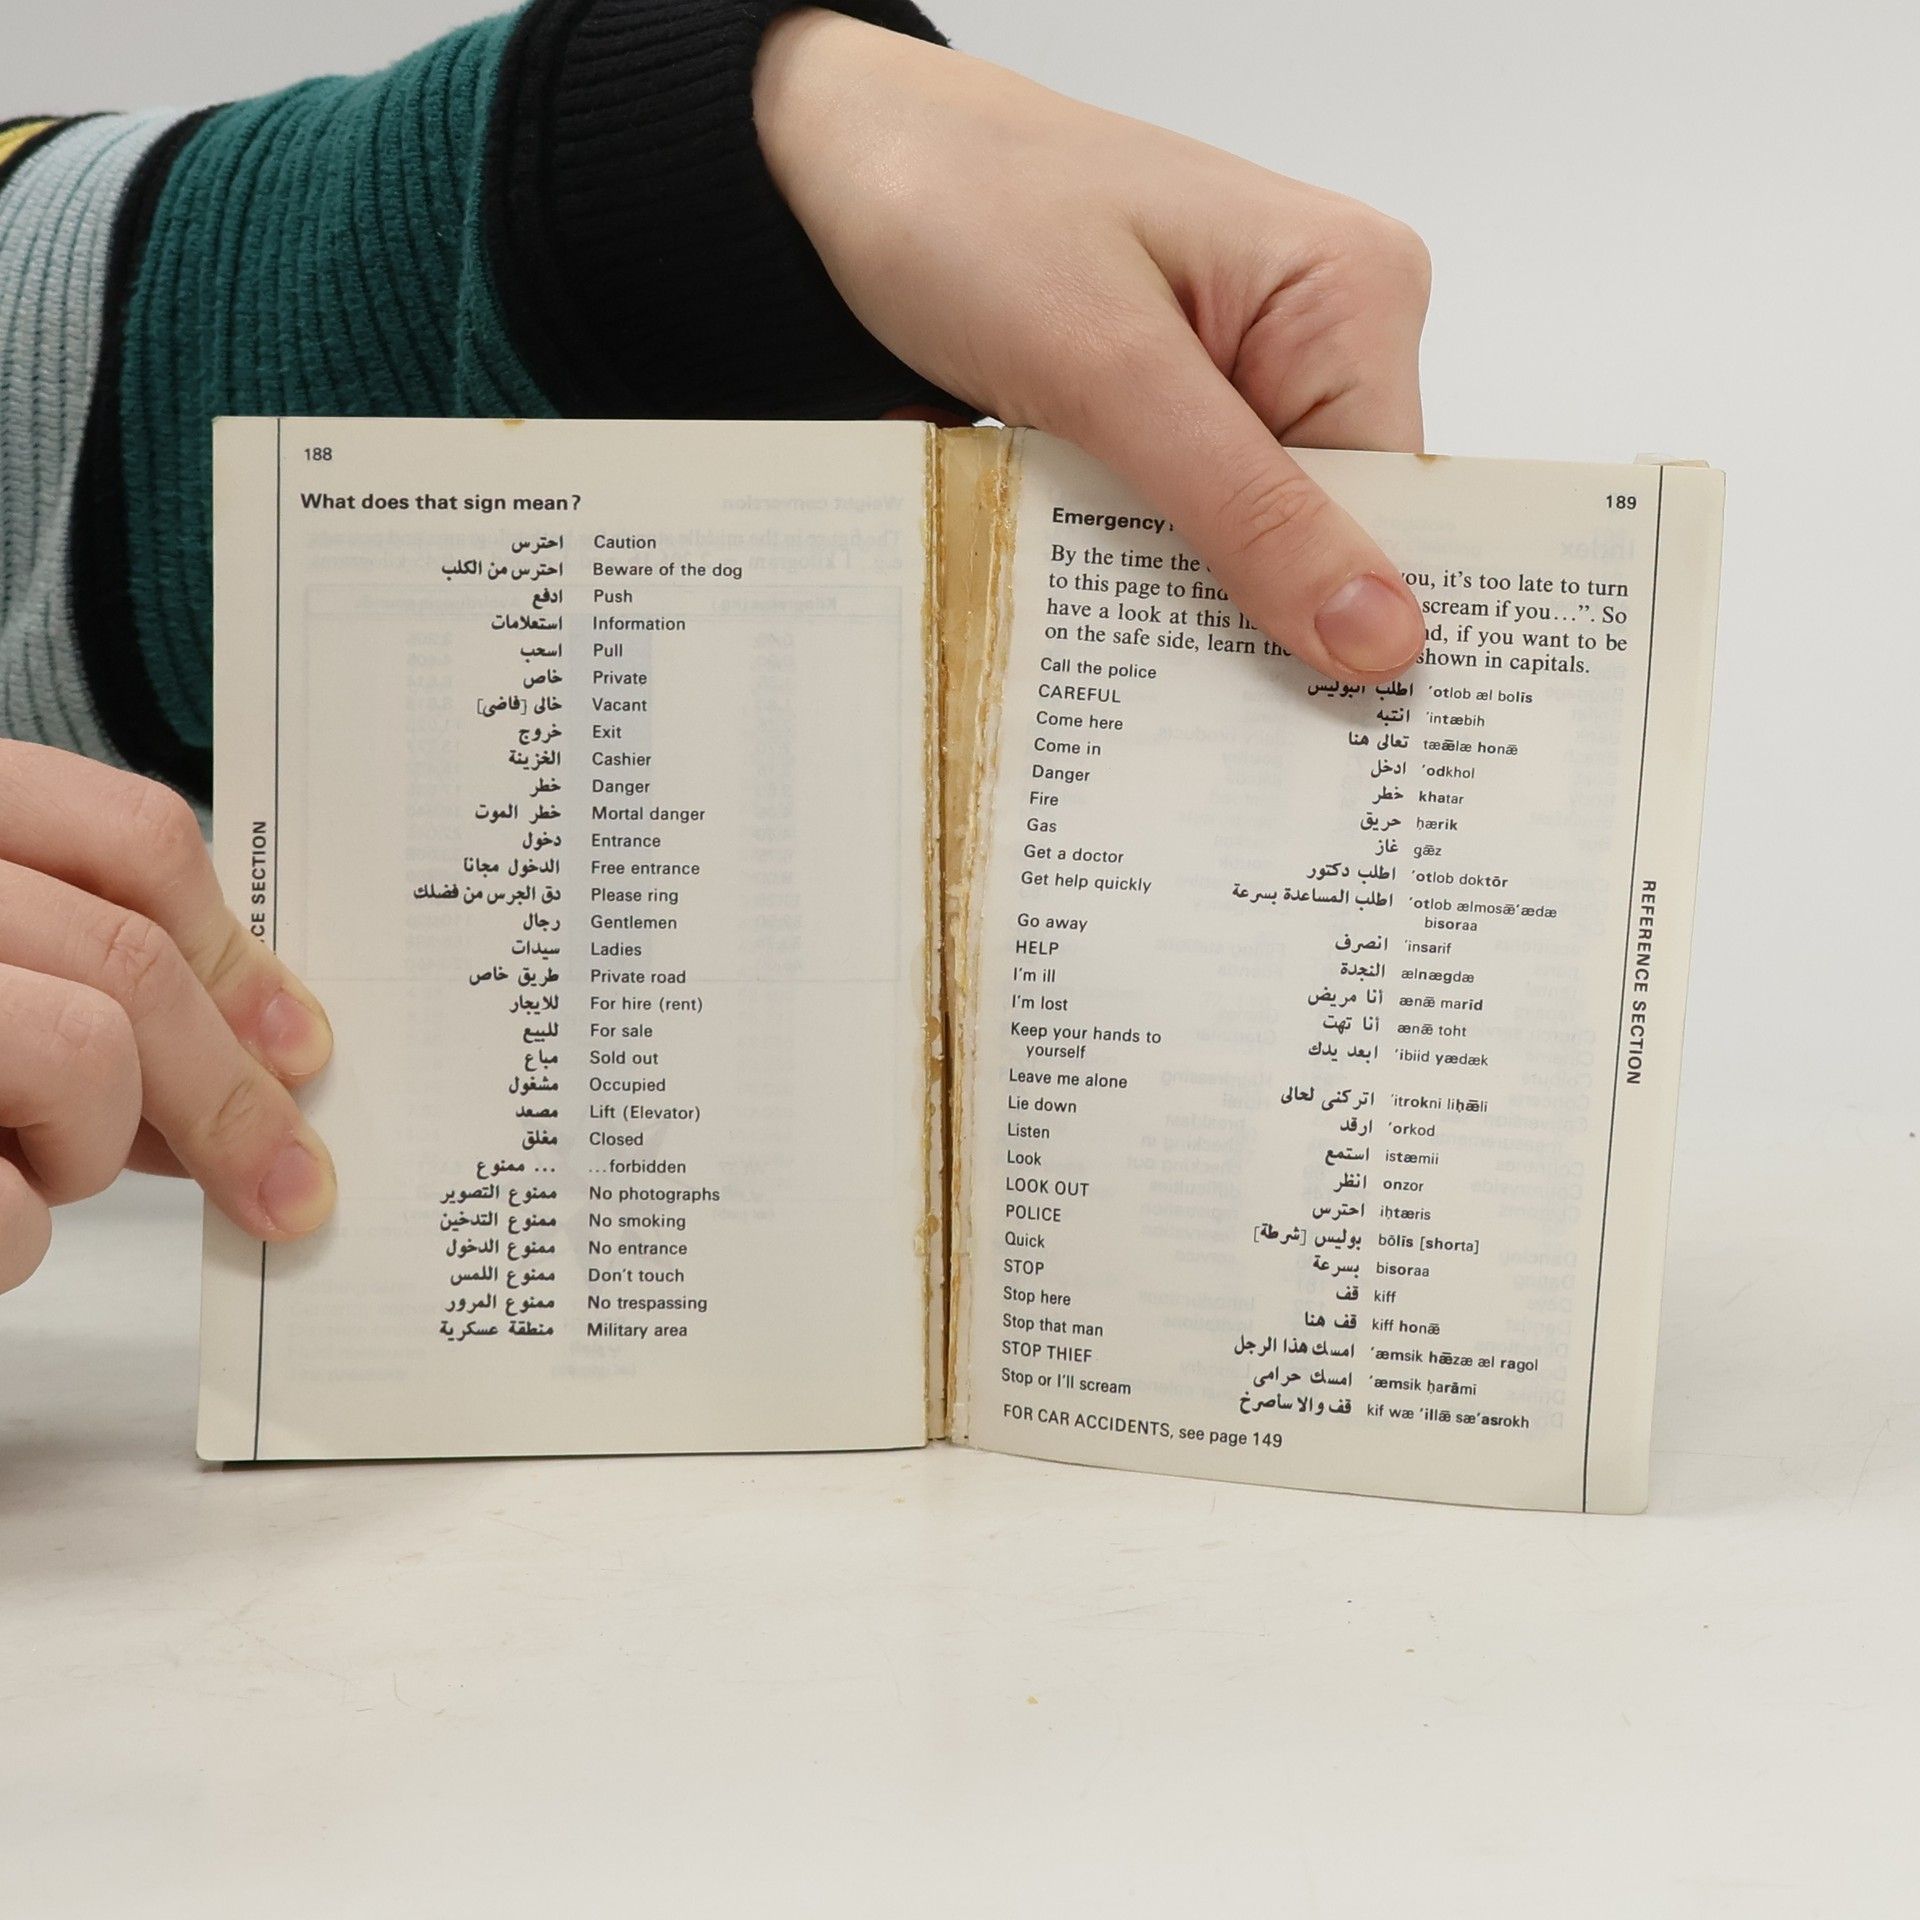 188
What does that sign mean?
احترس Caution
احترس من الكلب Beware of the dog
ادفع Push
استعلامات Information
اسحب Pull
خاص Private
خالى [فاضى] Vacant
خروج Exit
الخزينة Cashier
خطر Danger
خطر الموت Mortal danger
دخول Entrance
الدخول مجانا Free entrance
دق الجرس من فضلك Please ring
رجال Gentlemen
سيدات Ladies
طريق خاص Private road
للايجار For hire (rent)
للبيع For sale
مباع Sold out
مشغول Occupied
مصعد Lift (Elevator)
مغلق Closed
ممنوع ... ...forbidden
ممنوع التصوير No photographs
ممنوع التدخين No smoking
ممنوع الدخول No entrance
ممنوع اللمس Don't touch
ممنوع المرور No trespassing
منطقة عسكرية Military area
SECTION
189
Emergency
By the time the you, it's too late to turn
to this page to find scream if you...". So
have a look at this if you want to be
on the safe side, learn shown in capitals.
Call the police اطلب البوليس 'otlob æl bolīs
CAREFUL انتبه 'intæbih
Come here تعالى هنا tæǣlæ honǣ
Come in ادخل 'odkhol
Danger خطر khatar
Fire حريق ḥærik
Gas غاز gǣz
Get a doctor اطلب دكتور 'otlob doktōr
Get help quickly اطلب المساعدة بسرعة 'otlob ælmosǣ'ædæ
bisoraa
Go away انصرف 'insarif
HELP النجدة ælnægdæ
I'm ill أنا مريض ænǣ marīd
I'm lost أنا تهت ænǣ toht
Keep your hands to ابعد يدك 'ibiid yædæk
yourself
Leave me alone اتركنى لحالى 'itrokni liḥǣli
Lie down ارقد 'orkod
Listen استمع istæmii
Look انظر onzor
LOOK OUT احترس iḥtæris
POLICE بوليس [شرطة] bōlīs [shorta]
Quick بسرعة bisoraa
STOP قف kiff
Stop here قف هنا kiff honǣ
Stop that man امسك هذا الرجل 'æmsik hǣzæ æl ragol
STOP THIEF امسك حرامى 'æmsik ḥarāmi
Stop or I'll scream قف والا سأصرخ kif wæ 'illǣ sæ'asrokh
FOR CAR ACCIDENTS, see page 149
REFERENCE SECTION